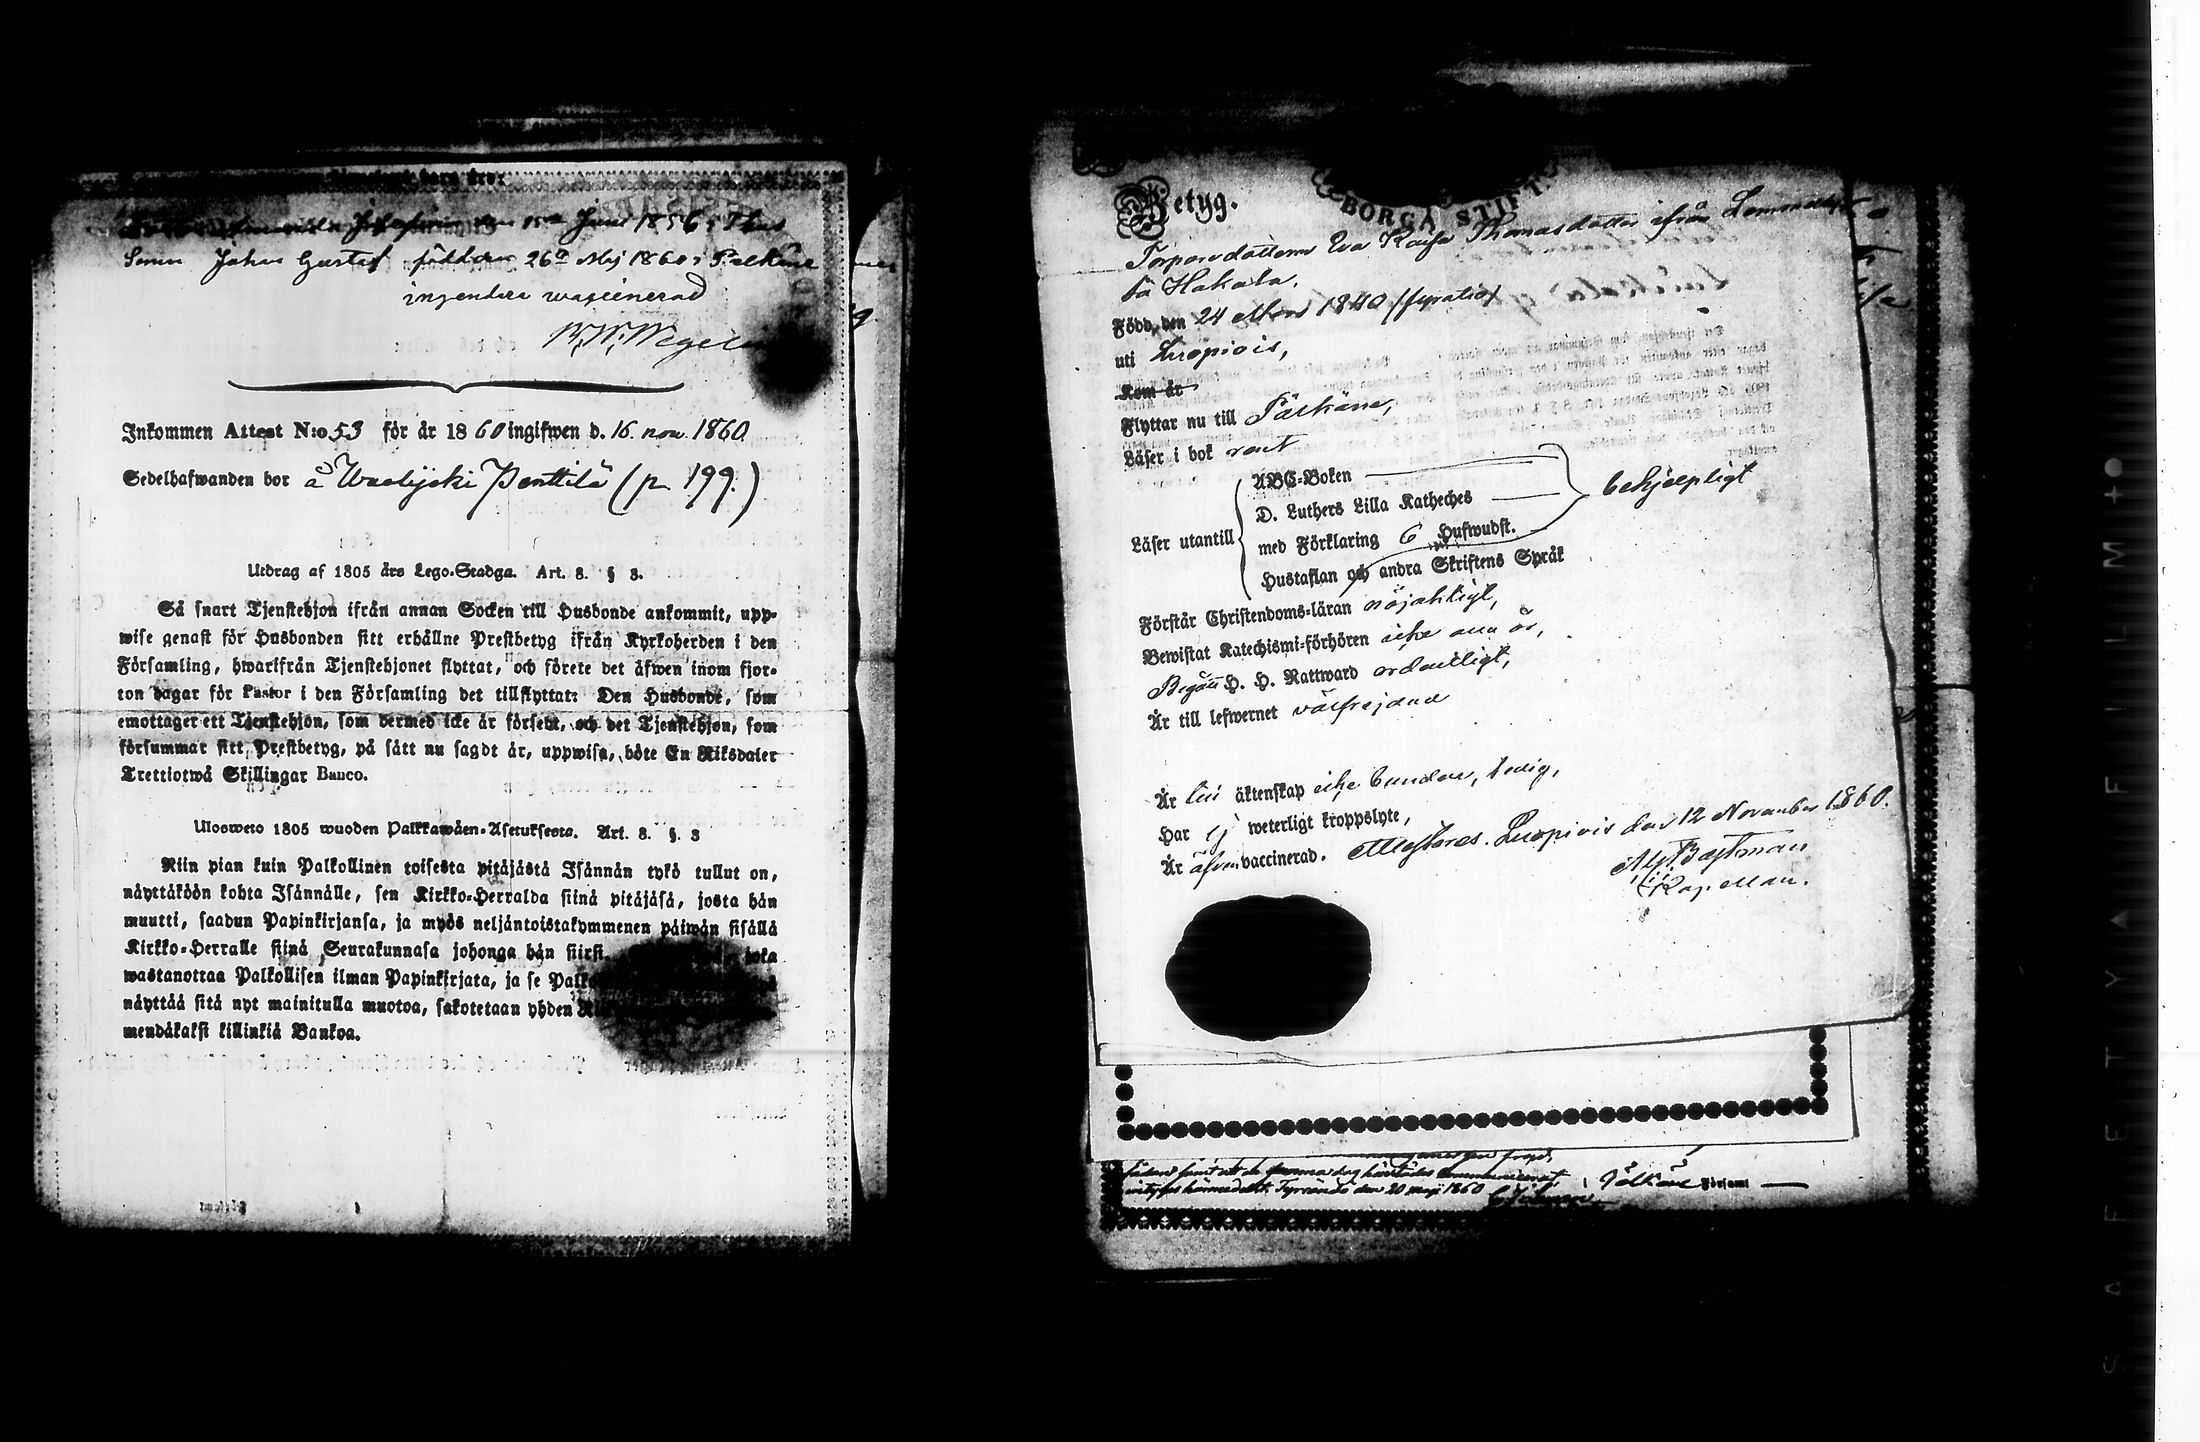 barn äro:
Johan Gustaf född den 26 Maj 1860 i Pelkäne
ingendera waccinerad
Inkommen Attest N:o 53 för år 1860 ingifwen d. 16. nov. 1860
Sedelhafwanden bor å Waelijoki Penttilä (p. 199.)
Utdrag af 1805 års Lego-Stadga. Art. 8. § 3.
Så snart Tjenstehjon ifrån annan Socken till Husbonde ankommit, upp-
wise genast för Husbonden sitt erhållne Prestbetyg ifrån Kyrkoherden i den
Församling, hwarifrån Tjenstehjonet flyttat, och förete det äfwen inom fjor-
ton dagar för Pastor i den Församling det tillflyttat: Den Husbonde, som
emottager ett Tjenstehjon, som dermed icke är försedt, och det Tjenstehjon, som
försummar sitt Prestbetyg, på sätt nu sagdt är, uppwisa, böte En Riksdaler
Trettiotwå Skillingar Banco.
Ulosweto 1805 wuoden Palkkawäen-Asetuksesta. Art. 8. §. 3
Niin pian kuin Palkollinen toisesta pitäjästä Isännän tykö tullut on,
näyttäköön kohta Isännälle, sen Kirkko-Herralda siinä pitäjäsä, josta hän
muutti, saadun Papinkirjansa, ja myös neljäntoistakymmenen päiwän sisällä
Kirkko-Herralle siinä Seurakunnasa johonga hän siirsi. joka
wastanottaa Palkollisen ilman Papinkirjata, ja se
näyttää sitä nyt mainitulla muotoa, sakotetaan yhden
mendäkaksi killinkiä Bankoa.
BORGÅ STIFT.
Betyg.
Torparedottern Eva Kaisa Thomasdotter ifrån
Hakala.
Född den 24 Mars 1840 (fyratio)
uti Luopiois,
Kom år
Flyttar nu till Pälkäne,
Läser i bok rent
Läser utantill
ABC-Boken
D. Luthers Lilla Katheches
med Förklaring 6 Hufwudst.
Hustaflan och andra Skriftens Språk
behjelpligt
Förstår Christendoms-läran nöjaktigt,
Bewistat Katechismi-förhören icke alla år,
Begått H. H. Nattward ordentligt,
Är till lefwernet välfrejdad
Är till äktenskap icke bunden, ledig,
Har ej weterligt kroppslyte,
Är äfven vaccinerad. Attesteras. Luopiois den 12 November 1860.
Kapellan.
den 20 maj 1860
Pälkäne Församl
SAFETY FILM